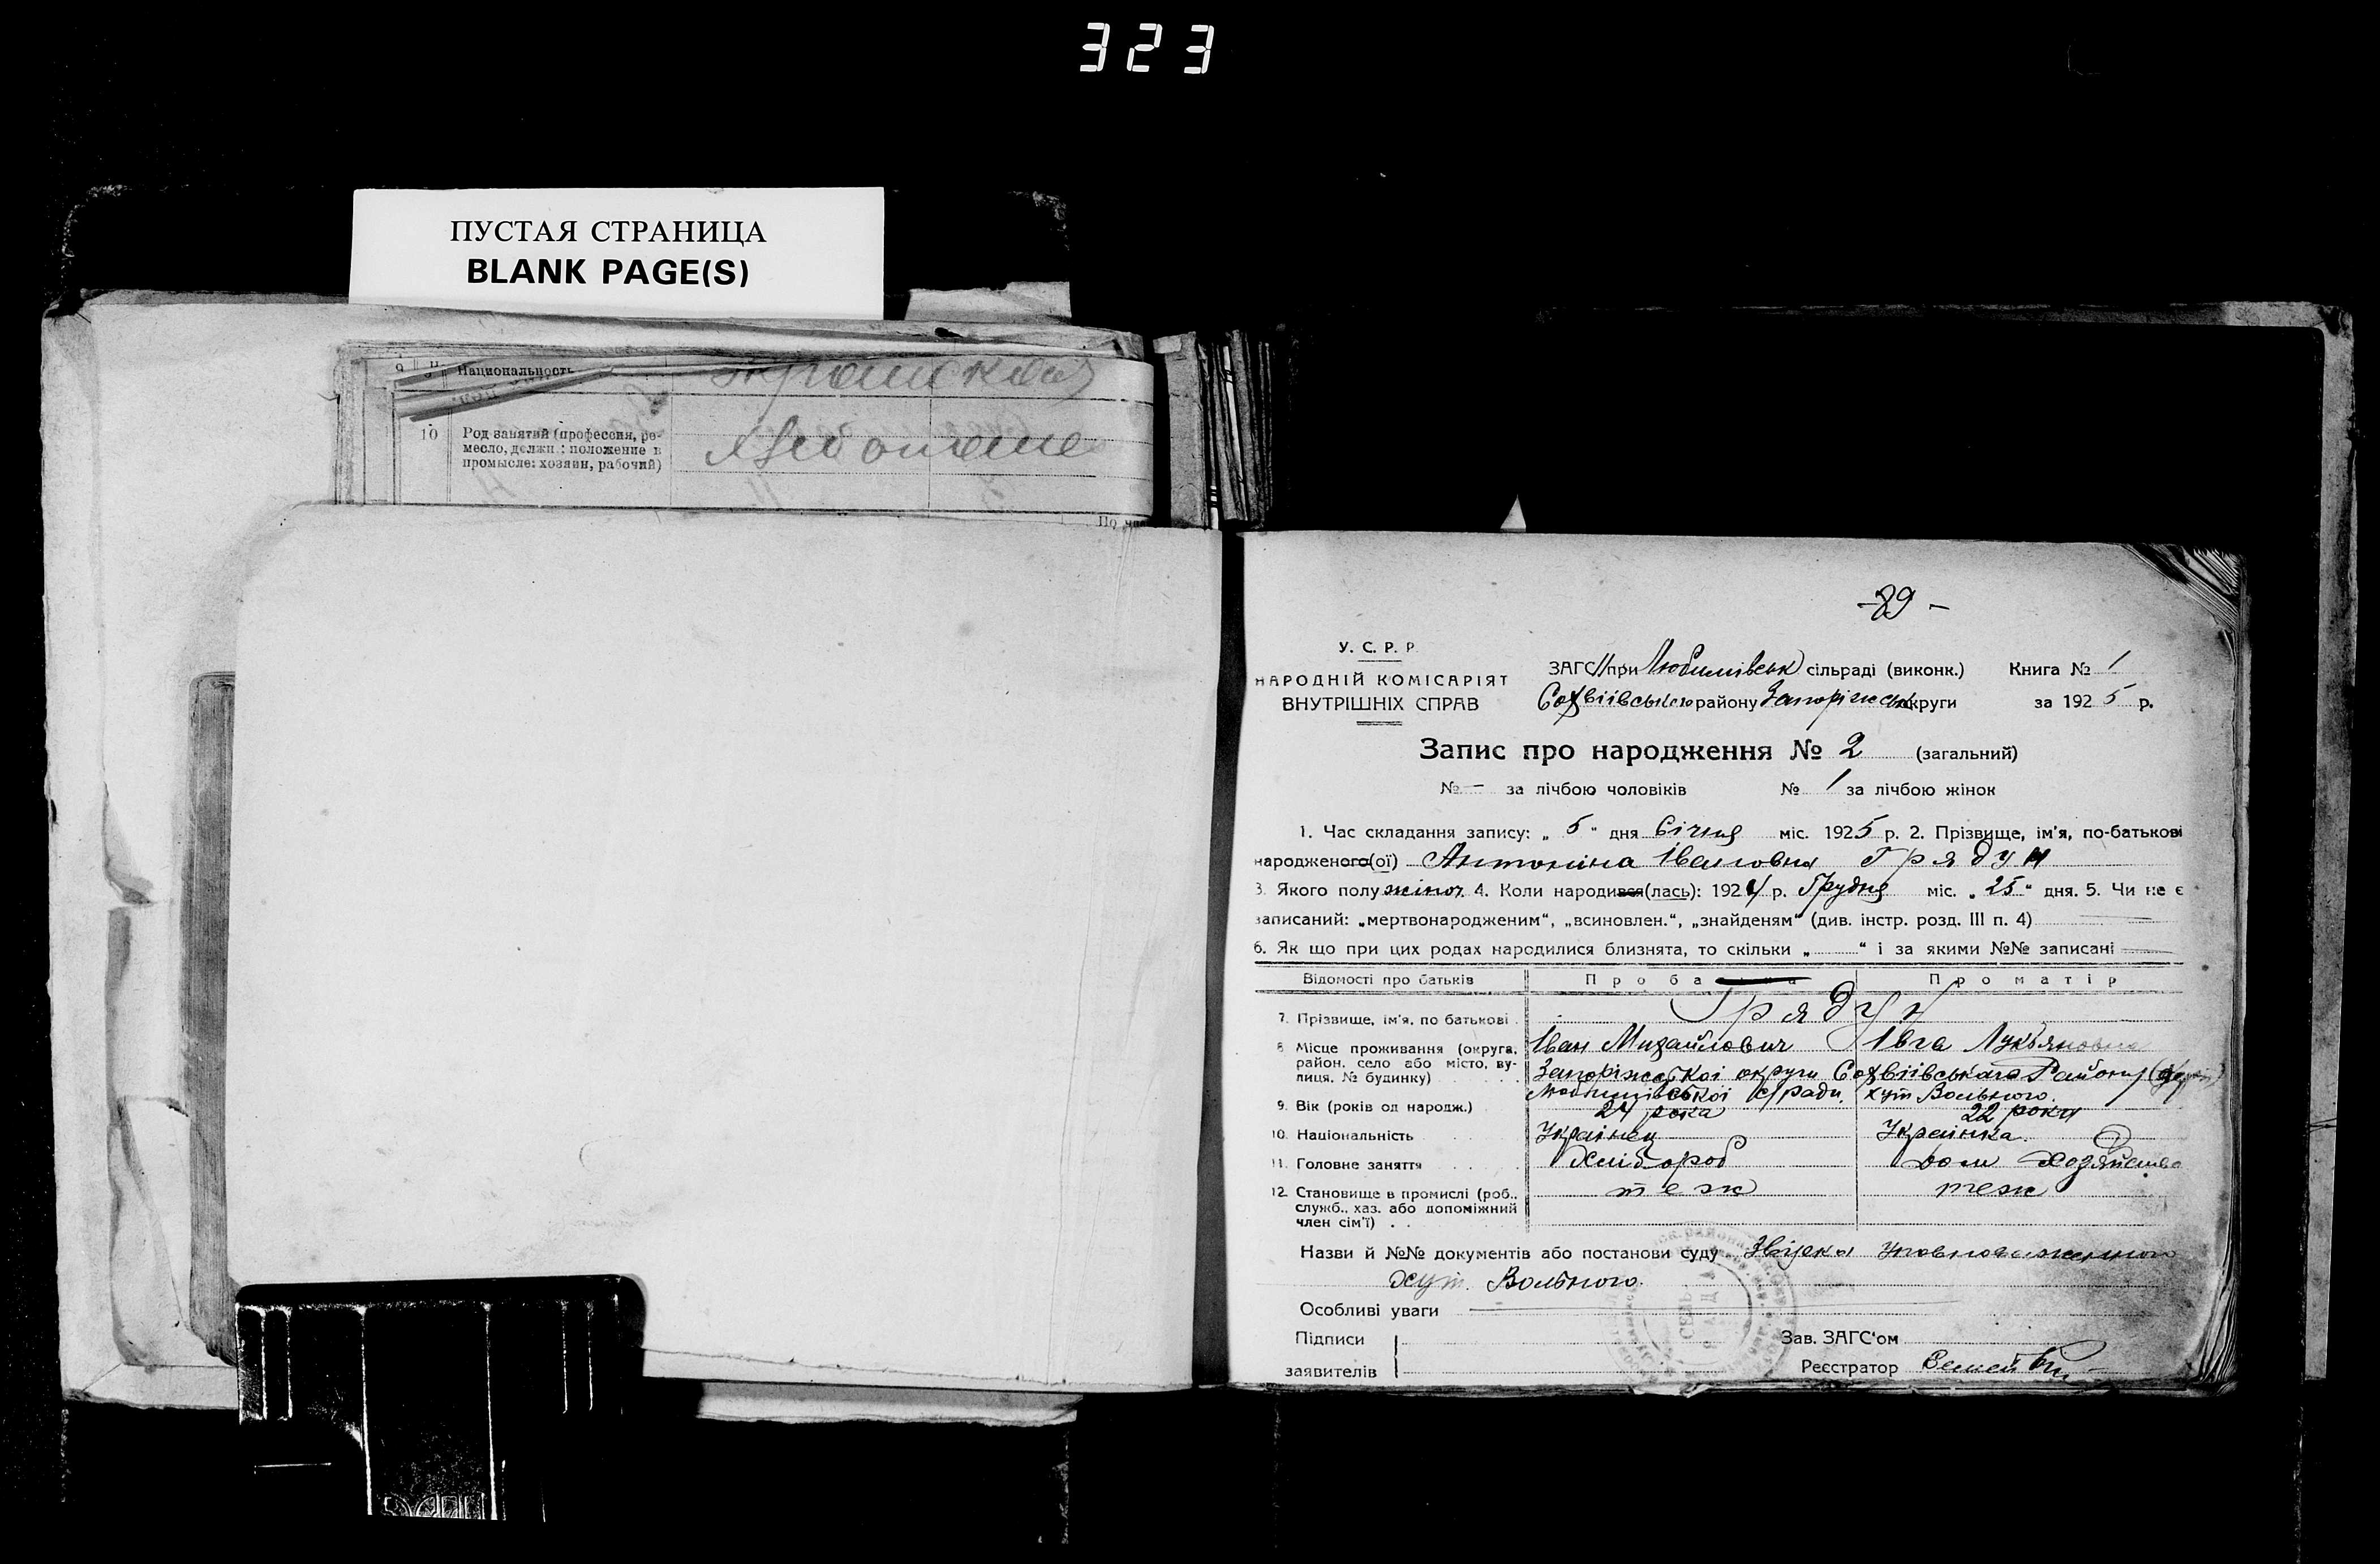 323
ПУСТАЯ СТРАНИЦА
BLANK PAGE(S)
Национальность
10 Род занятий (профессия, ре-
месло, должн.: положение в
промысле: хозяин, рабочий)
- 89 -
У. С. Р. Р.
НАРОДНІЙ КОМІСАРІЯТ
ВНУТРІШНІХ СПРАВ
ЗАГС при Любимівськ сільраді (виконк.) Книга № 1
Софіівського району Запоріжськ округи за 1925 р.
Запис про народження № 2 (загальний)
№ — за лічбою чоловіків № 1 за лічбою жінок
1. Час складання запису: „ 5 “ дня Січня міс. 1925 р. 2. Прізвище, ім'я, по-батькові
народженого(ої) Антоніна Івановна Грядун
3. Якого полу жіноч. 4. Коли народився(лась): 1924 р. Грудня міс. „ 25 “ дня. 5. Чи не є
записаний: „мертвонародженим“, „всиновлен.“, „знайденям“ (див. інстр. розд. III п. 4)
6. Як що при цих родах народилися близнята, то скільки „ “ і за якими №№ записані
Відомості про батьків Про ба Про матір
Грядун
7. Прізвище, ім'я, по батькові Іван Михайлович Івга Лукьяновна
8. Місце проживання (округа, район, село або місто, ву-
лиця, № будинку) Запоріжської округи Софіівського Району
Любимівської с/ради хут Вольного.
9. Вік (років од народж.) 24 рока 22 роки
10. Національність Українец Українка.
11. Головне заняття Хлібороб дом хозяйство
12. Становище в промислі (роб.,
служб., хаз. або допоміжний
член сім'ї) теж теж
Назви й №№ документів або постанови суду Уповноваженного
хут. Вольного.
Особливі уваги
Підписи
заявителів
Зав. ЗАГС'ом
Реєстратор